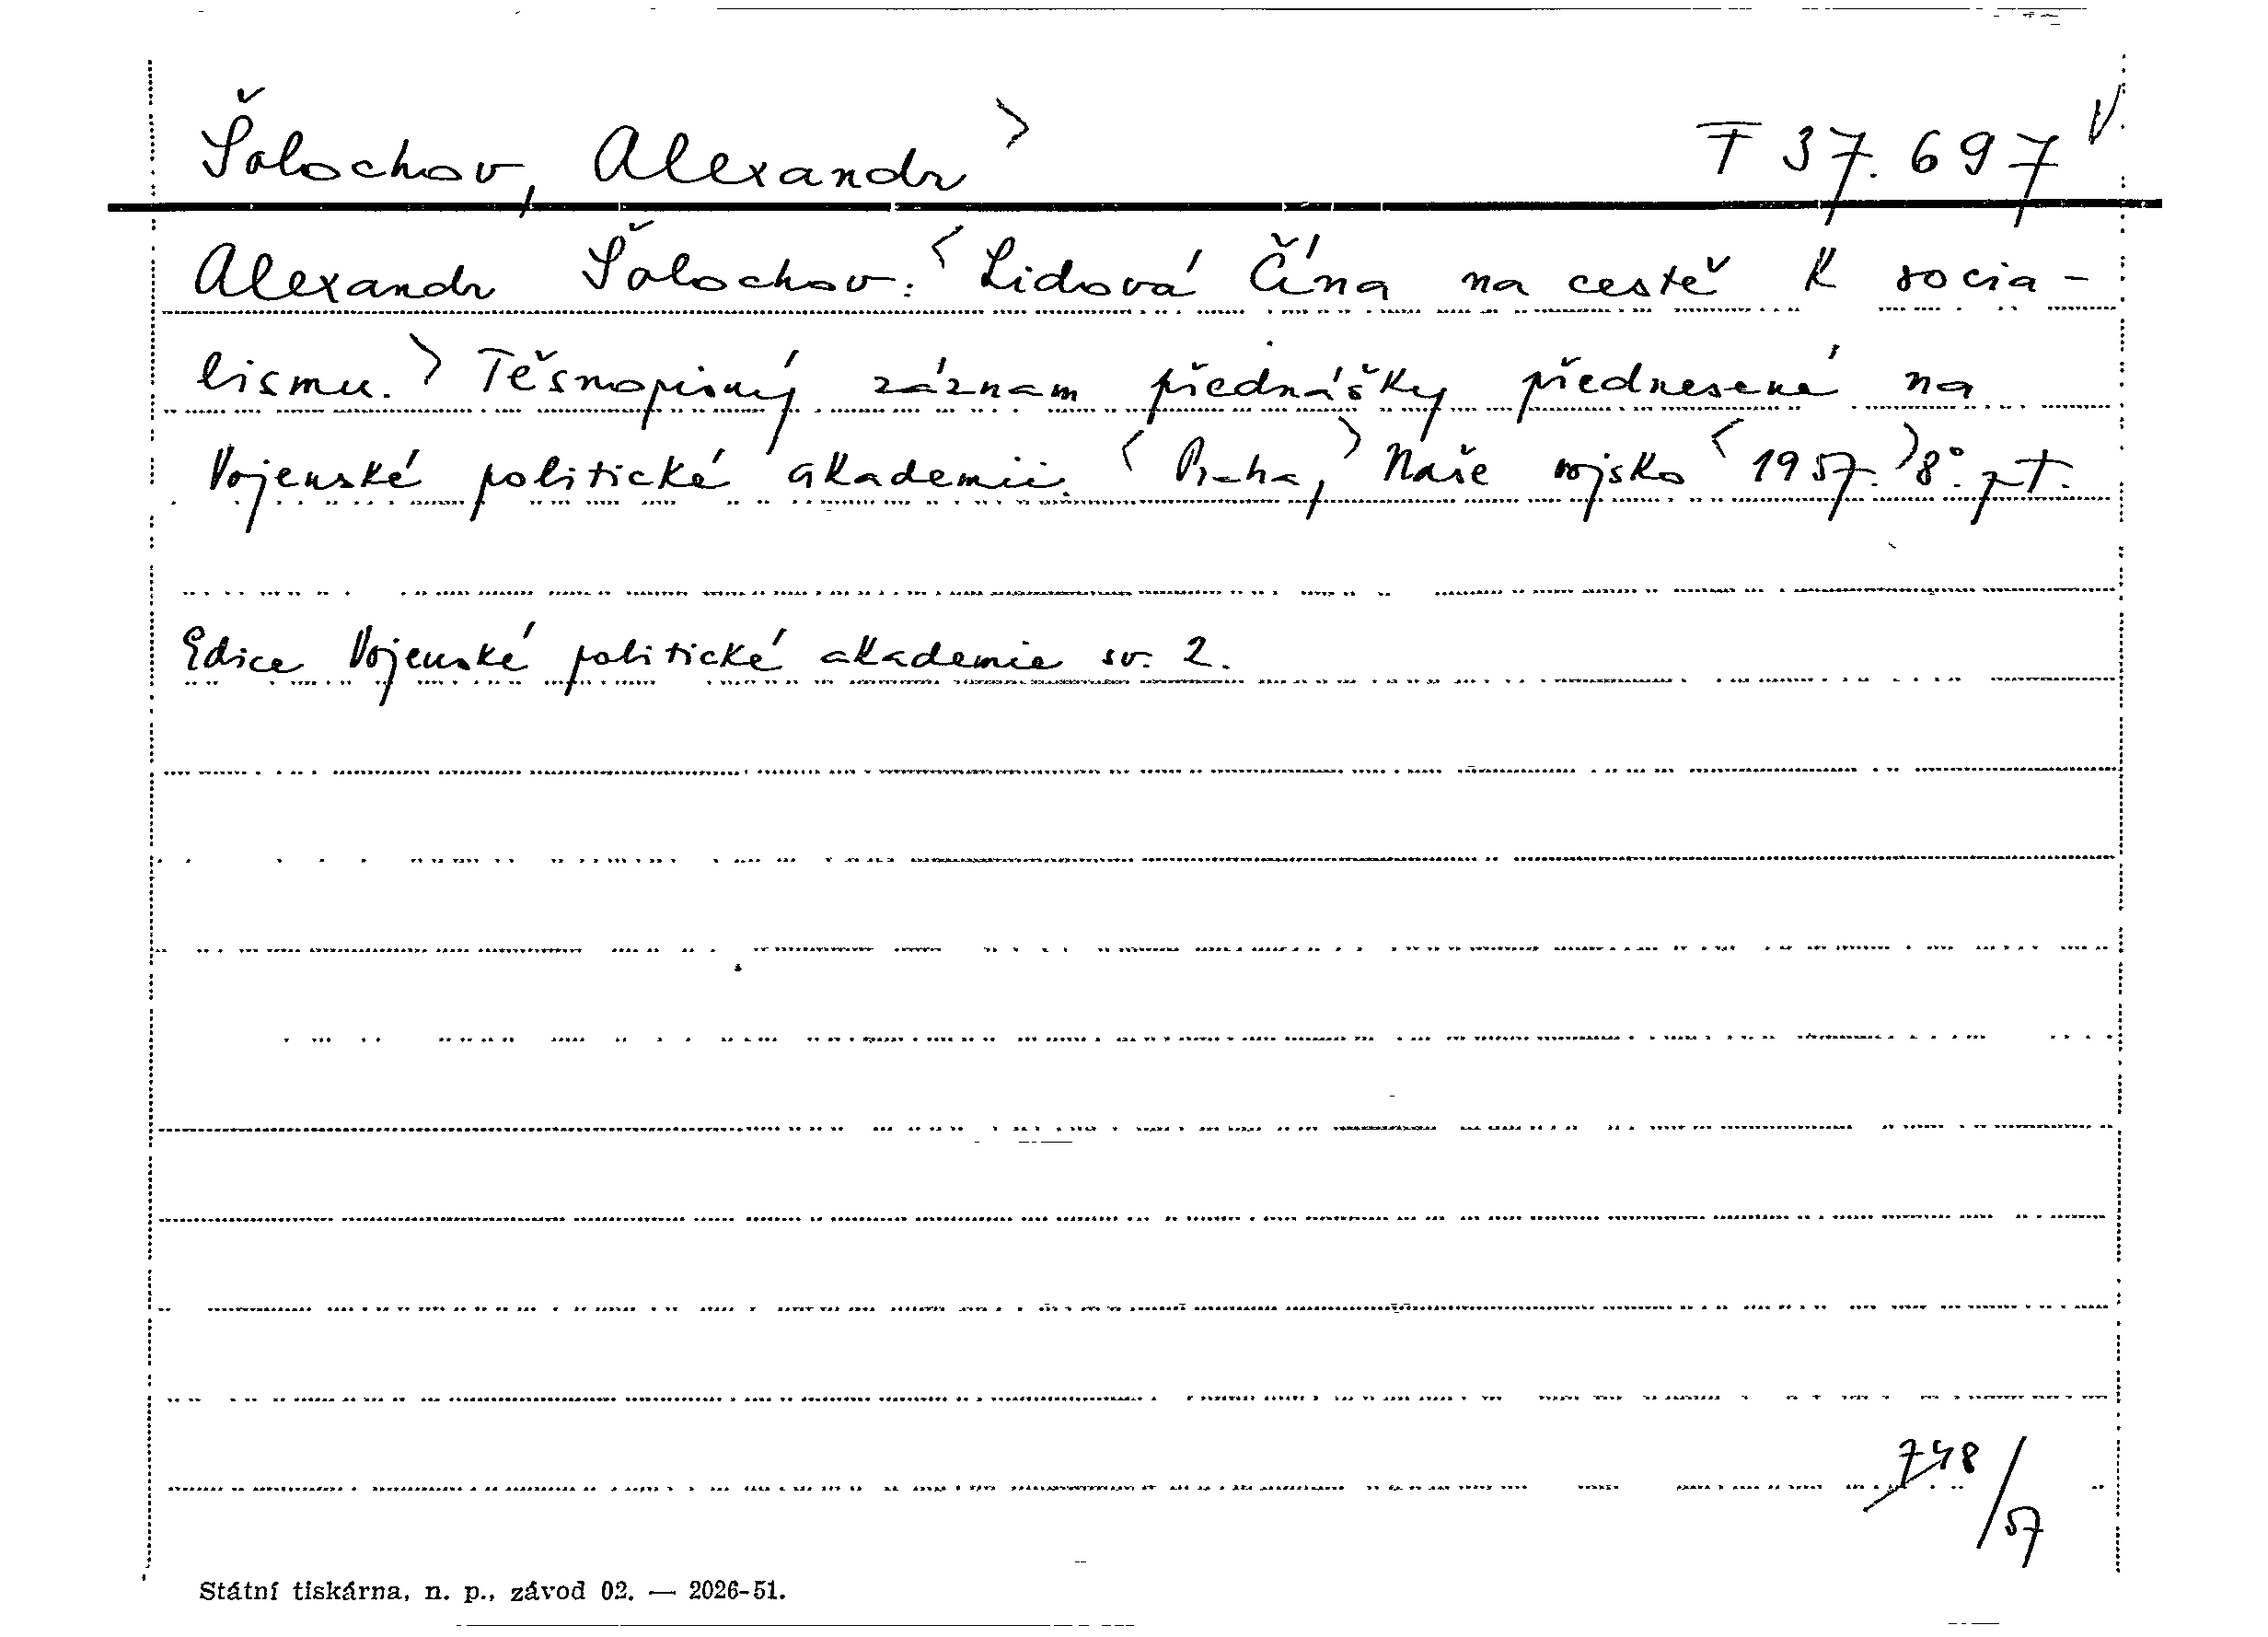 Šolochov, Alexandr > T 37.697 V
Alexandr Šolochov: < Lidová Čína na cestě k socia-
lismu. > Těsnopisný záznam přednášky přednesené na
Vojenské politické akademii. < Praha, > Naše vojsko < 1957. > 8°. pt.
Edice Vojenské politické akademie sv. 2.
748/57
Státní tiskárna, n. p., závod 02. — 2026-51.